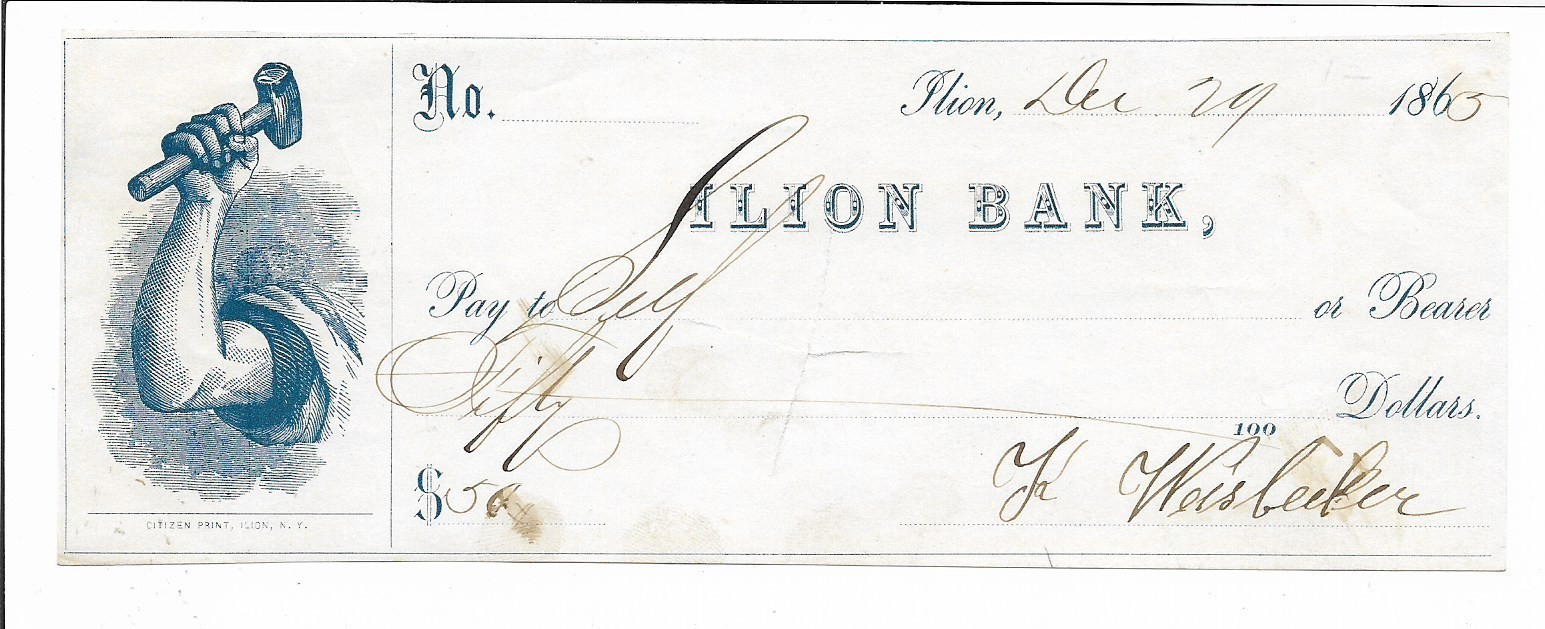 No.
Ilion, Dec 29 1865
ILION BANK,
Pay to Self or Bearer
Fifty 100 Dollars.
$50
K Weisbecker
CITIZEN PRINT, ILION, N. Y.